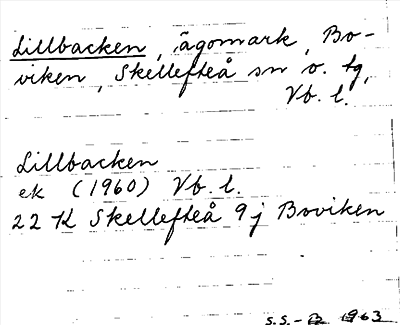 Lillbacken, ägomark, Bo-
viken, Skellefteå sn o. tg,
Vb. l.
Lillbacken
ek (1960) Vb. l.
22 K Skellefteå 9 j Boviken
S.S.-B 1963